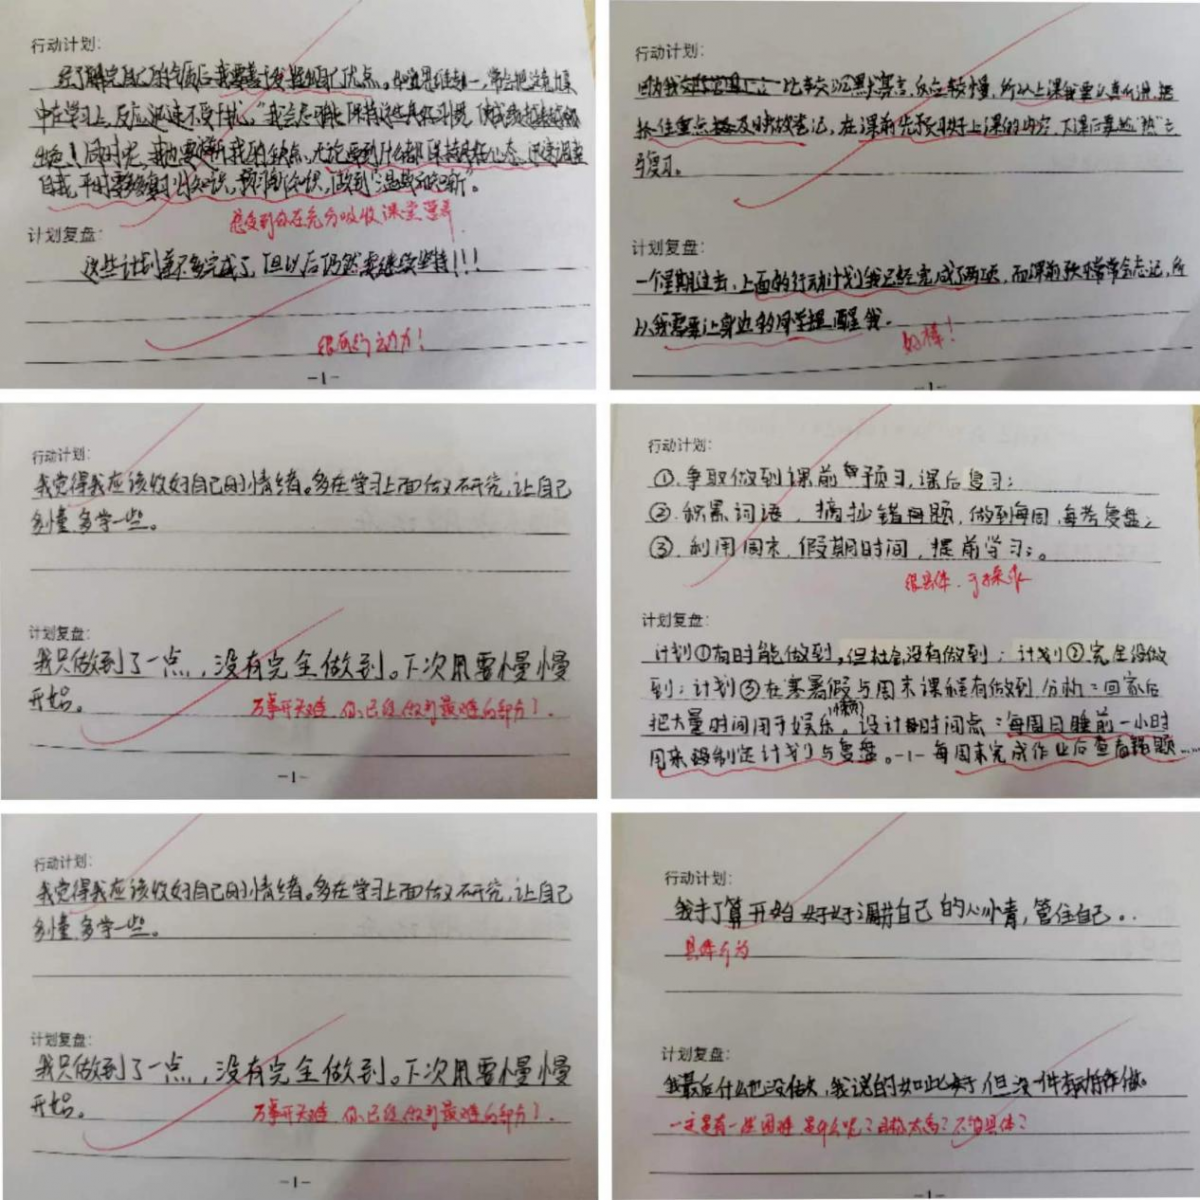 行动计划:
我要
优点。
中在学习上,反应迅速不受干扰。"我会
保持这些良好习惯
出色!同时呢,我也要
我的缺点。无论遇到什么都保持良好心态,
自我,平时要多复习
知识,预习新知识,做到"温故而知新"。
感受到你在充分吸收课堂营养
计划复盘:
这些计划差不多完成了,但以后仍然要继续坚持!!!
很有行动力!
-1-
行动计划:
因为我
比较沉默寡言,反应较慢,所以上课我要认真听讲,把
抓住重点
及时做笔记,在课前先预习好上课的内容,下课后
与复习。
计划复盘:
一个星期过去,上面的行动计划我已经完成了两项,而课前预习常常会忘记,所
以我需要让身边的同学提醒我。
好棒!
-1-
行动计划:
我觉得我应该收好自己的小情绪。多在学习上面做文研究,让自己
多懂多学一些。
计划复盘:
我只做到了一点,没有完全做到。下次用要慢慢
开始。
万事开头难,你已经做到最难的部分了。
-1-
行动计划:
①.争取做到课前预习,课后复习;
②.积累词语,摘抄错题,做到每周、每考复盘;
③.利用周末、假期时间,提前学习;。
很具体、可操作
计划复盘:
计划①有时能做到,但社会没有做到;计划②完全没做
到;计划③在寒暑假与周末课程有做到。分析:回家后
把大量时间用于娱乐。设计时间点:每周日睡前一小时
用来制定计划与复盘。-1-每周末完成作业后查看错题……
行动计划:
我觉得我应该收好自己的小情绪。多在学习上面做文研究,让自己
多懂多学一些。
计划复盘:
我只做到了一点,没有完全做到。下次用要慢慢
开始。
万事开头难,你已经做到最难的部分了。
-1-
行动计划:
我打算开始好好调节自己的心情,管住自己。
具体行为
计划复盘:
我最后什么也没做,我说的如此好,但没一件事
做。
一定是有一些困难,是什么呢?目标太高?不够具体?
-1-